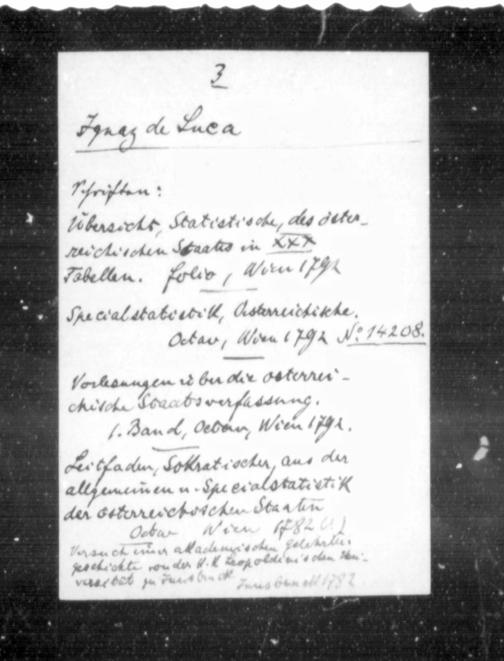 3
Ignaz de Luca
Schriften:
Übersicht, Statistische, des öster-
reichischen Staats in XXX
Tabellen. folio, Wien 1792
Specialstatistik, Österreichische.
Octav, Wien 1792 No 14208.
Vorlesungen über die österrei-
chische Staatsverfassung.
1. Band, Octav, Wien 1792.
Leitfaden, Sokratischer, aus der
allgemeinen u. Specialstatistik
der österreichischen Staaten
Octav Wien 1782 (!)
Versuch einer akademischen Gelehrten
geschichte von der K. K. leopoldinischen Uni-
versität zu Innsbruck Innsbruck 1782